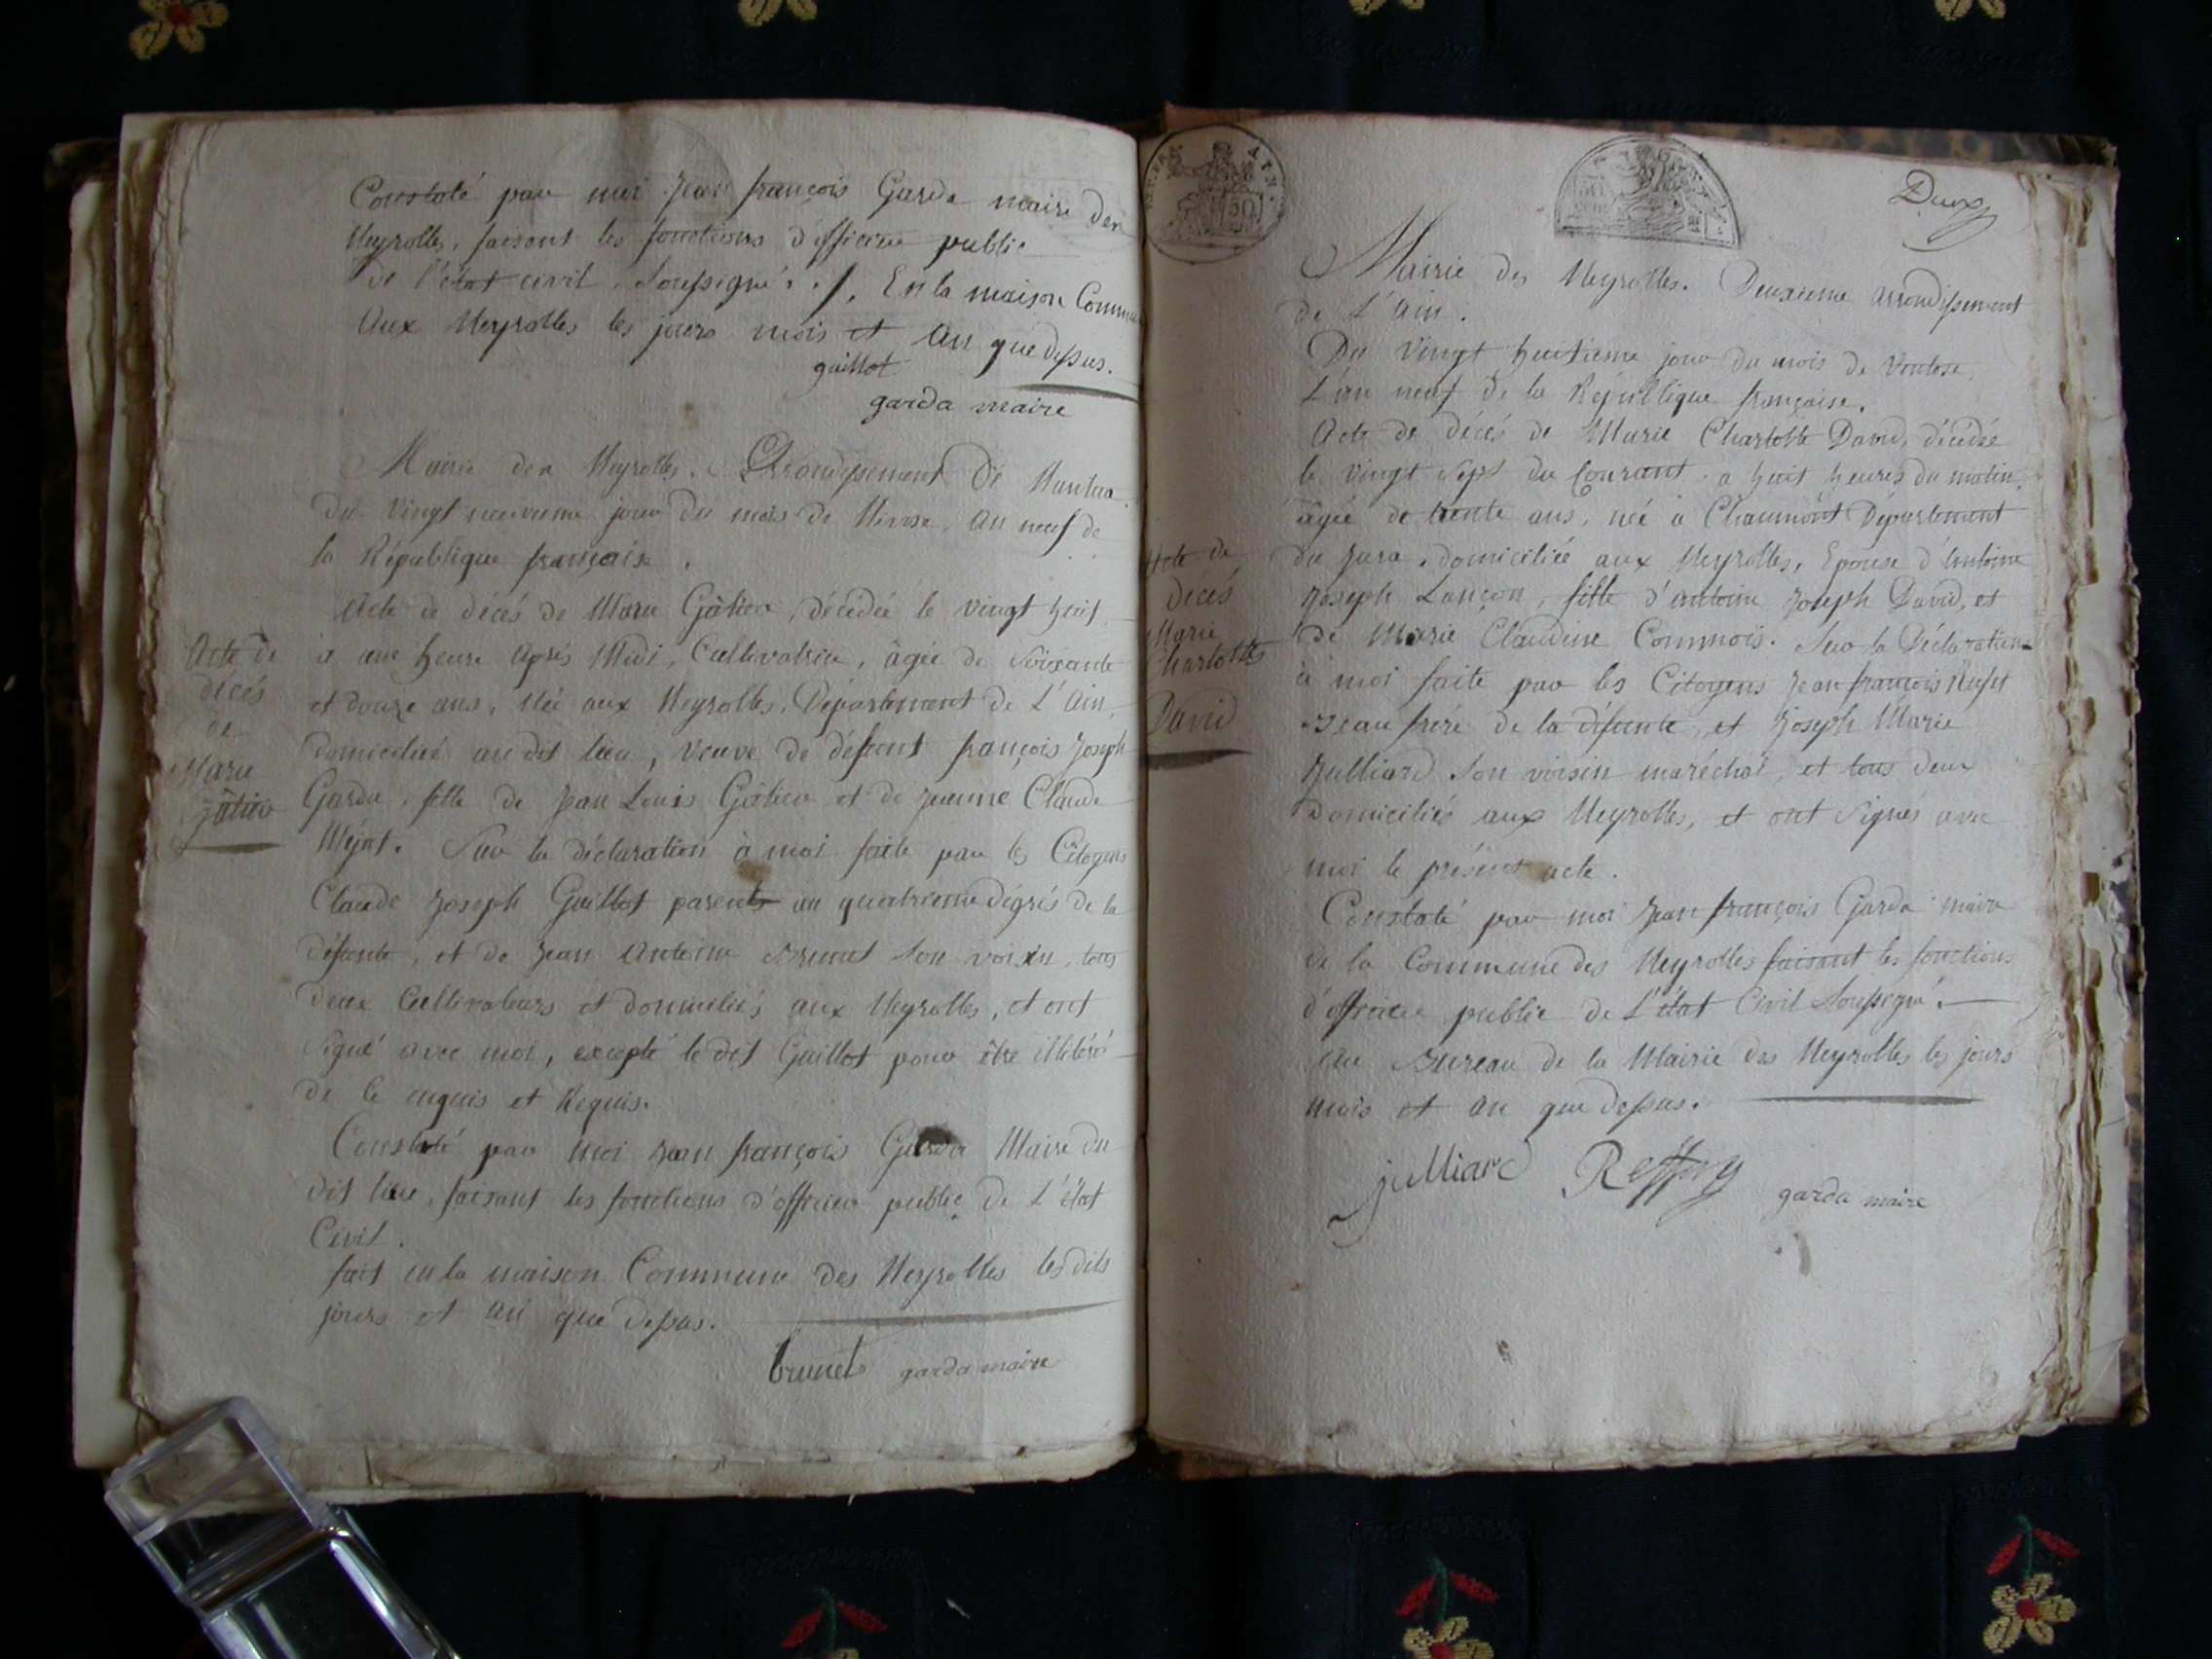 Constaté par moi Jean françois Garda maire des
Neyrolles, faisant les fonctions d'officier public
de l'état civil, Soussigné. En la maison Commune
Aux Neyrolles les jours mois et an que dessus.
guillot
garda maire
Mairie des Neyrolles. Arrondissement de Nantua
du vingt neuvieme jour du mois de Nivose, an neuf de
la République française.
Acte de décés de Marie Gâtier, décédée le vingt huit
à une heure Après Midi, Cultivatrice, âgée de Soixante
et douze ans, née aux Neyrolles, Département de L'Ain,
domiciliée au dit lieu, veuve de défunt françois Joseph
Garda, fille de Jean Louis Gâtier et de Jeanne Claude
Sur la déclaration à moi faite par les Citoyens
Claude Joseph Guillot parents au quatrieme dégrés de la
défunte, et de Jean Antoine Brunet son voisin, tous
deux Cultivateurs et domiciliés aux Neyrolles, et ont
Signé avec moi, excepté le dit Guillot pour être illitéré
de ce enquis et Requis.
Constaté par moi Jean françois Garda Maire du
dit lieu, faisant les fonctions d'officier public de L'état
Civil.
fait en la maison Commune des Neyrolles les dits
jours et an que dessus.
brunet garda maire
Acte de
décés
de
Marie
Gâtier
Deux
Mairie des Neyrolles. Deuxieme arrondissement
de L'Ain.
Du vingt huitieme jour du mois de Ventose
L'an neuf de la République française.
Acte de décés de Marie Charlotte David, décédée
le vingt Sept du Courant, a huit heures du matin,
âgée de trente ans, née à Chaumont Département
du Jura, domiciliée aux Neyrolles, Epouse d'Antoine
Joseph Lançon, fille d'antoine Joseph David, et
de Marie Claudine Commois. Sur la Déclaration
à moi faite par les Citoyens Jean françois
Beau frére de la défunte, et Joseph Marie
Julliard Son voisin maréchal, et tous deux
domiciliés aux Neyrolles, et ont Signés avec
moi le présent acte.
Constaté par moi Jean françois Garda maire
de la Commune des Neyrolles faisant les fonctions
d'officier public de L'état Civil Soussigné.
Au Bureau de la Mairie des Neyrolles les jours
mois et an que dessus.
julliard Reffay garda maire
Acte de
décés
Marie
Charlotte
David